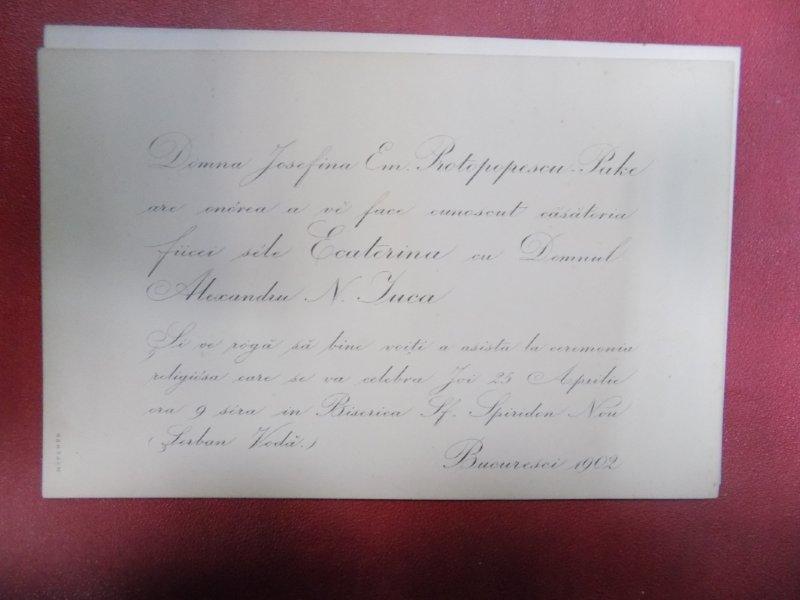 Domna Josefina Em. Protopopescu-Pake
are onórea a vĕ face cunoscut căsătoria
fiicei séle Ecaterina cu Domnul
Alexandru N. Iuca
Și ve rógă să bine voiți a asistă la ceremonia
religiósa care se va celebra Joi 25 Aprilie
ora 9 séra in Biserica Sf. Spiridon Nou
(Șerban Vodă.)
Bucuresci 1902